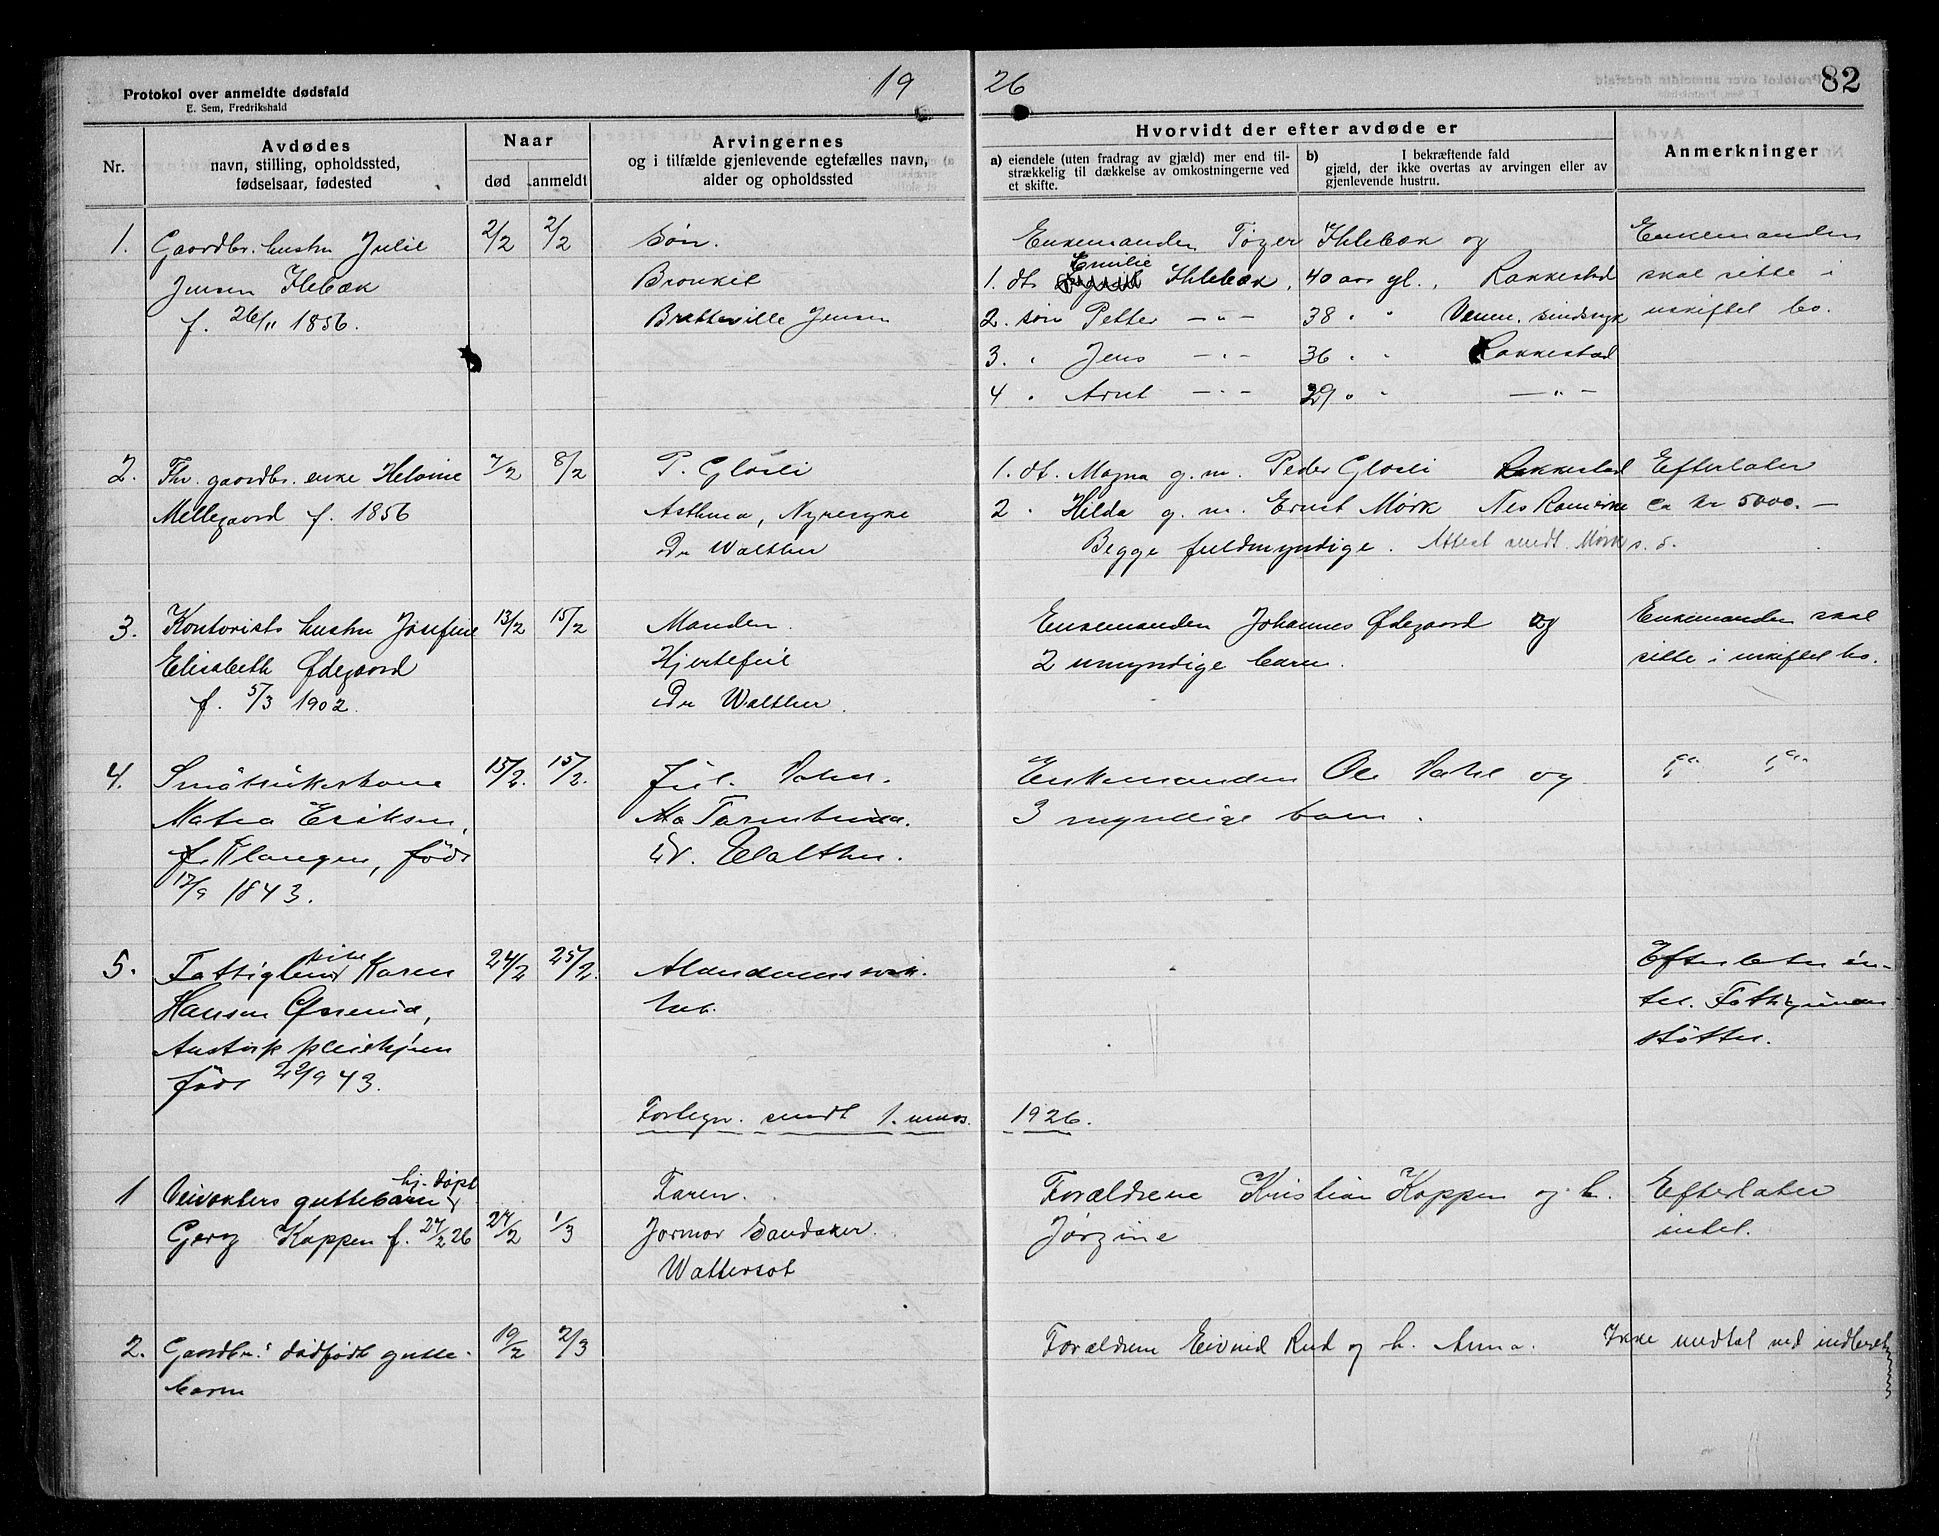 Protokol over anmeldte dødsfald
E. Sem, Fredrikshald
19 26
82
Nr.
Avdødes
navn, stilling, opholdssted,
fødselsaar, fødested
Naar
død anmeldt
Arvingernes
og i tilfælde gjenlevende egtefælles navn,
alder og opholdssted
Hvorvidt der efter avdøde er
a) eiendele (uten fradrag av gjæld) mer end til-
strækkelig til dækkelse av omkostningerne ved
et skifte.
b) I bekræftende fald
gjæld, der ikke overtas av arvingen eller av
gjenlevende hustru.
Anmerkninger
1. Gaardbr. hustru Julie
Jensen Ilebæk
f. 26/11 1856.
2/2 2/2
Søn.
Bronkit
Bratteville Jensen
Enkemanden Tøger Ihlebæk og
1. dt. Emilie Ihlebæk, 40 aar gl., Rakkestad
2. søn Petter — " — 38 " " Venm. sindssyk
3. " Jens — " — 36 " " Rakkestad
4 " Arnt — " — 29 " " — " —
Enkemanden
skal sitte i
uskiftet bo.
2. Fhv. gaardbr. enke Helvine
Mellegaard f. 1856
7/2 8/2
P. Gløsli
Asthma, Nyresyke
Dr Walther
1. dt. Magna g. m. Peder Gløsli Rakkestad
2 " Hilda g. m. Ernst Mørk Nes Romerike
Begge fuldmyndige. Attest sendt Mørk s. d.
Efterlater
ca kr 5000.—
3. Kontorists hustru Josefine
Elisabeth Ødegaard
f. 5/3 1902.
13/2 15/2
Manden.
Hjertefeil
Dr Walther.
Enkemanden Johannes Ødegaard og
2 umyndige barn.
Enkemanden skal
sitte i uskiftet bo.
4. Småbrukerkone
Matea Eriksen,
f. Klangen, født
17/9 1843.
15/2. 15/2.
Jul. Dahl.
Dr. Walther.
Enkemanden Ole Dahl og
3 myndige barn.
" "
5. Fattiglem Karen
Hansen
Austorp pleiehjem
født 22/9 43.
24/2 25/2.
Alderdomssvak-
het.
Efterlater in-
tet. Fattigunder-
støttet.
Fortegn. sendt 1. mars 1926.
1 Veivokters guttebarn hj. døpt
Georg Koppen f. 27/2 26
27/2 1/3
Faren.
Jormor Sandaker.
Vattersot
Forældrene Kristian Koppen og h.
Jørgine
Efterlater
intet.
2. Gaardbr.s dødfødt gutte-
barn
19/2 2/3
Forældrene Eivind Rud og h. Anna.
Ikke medtat ved indberetn